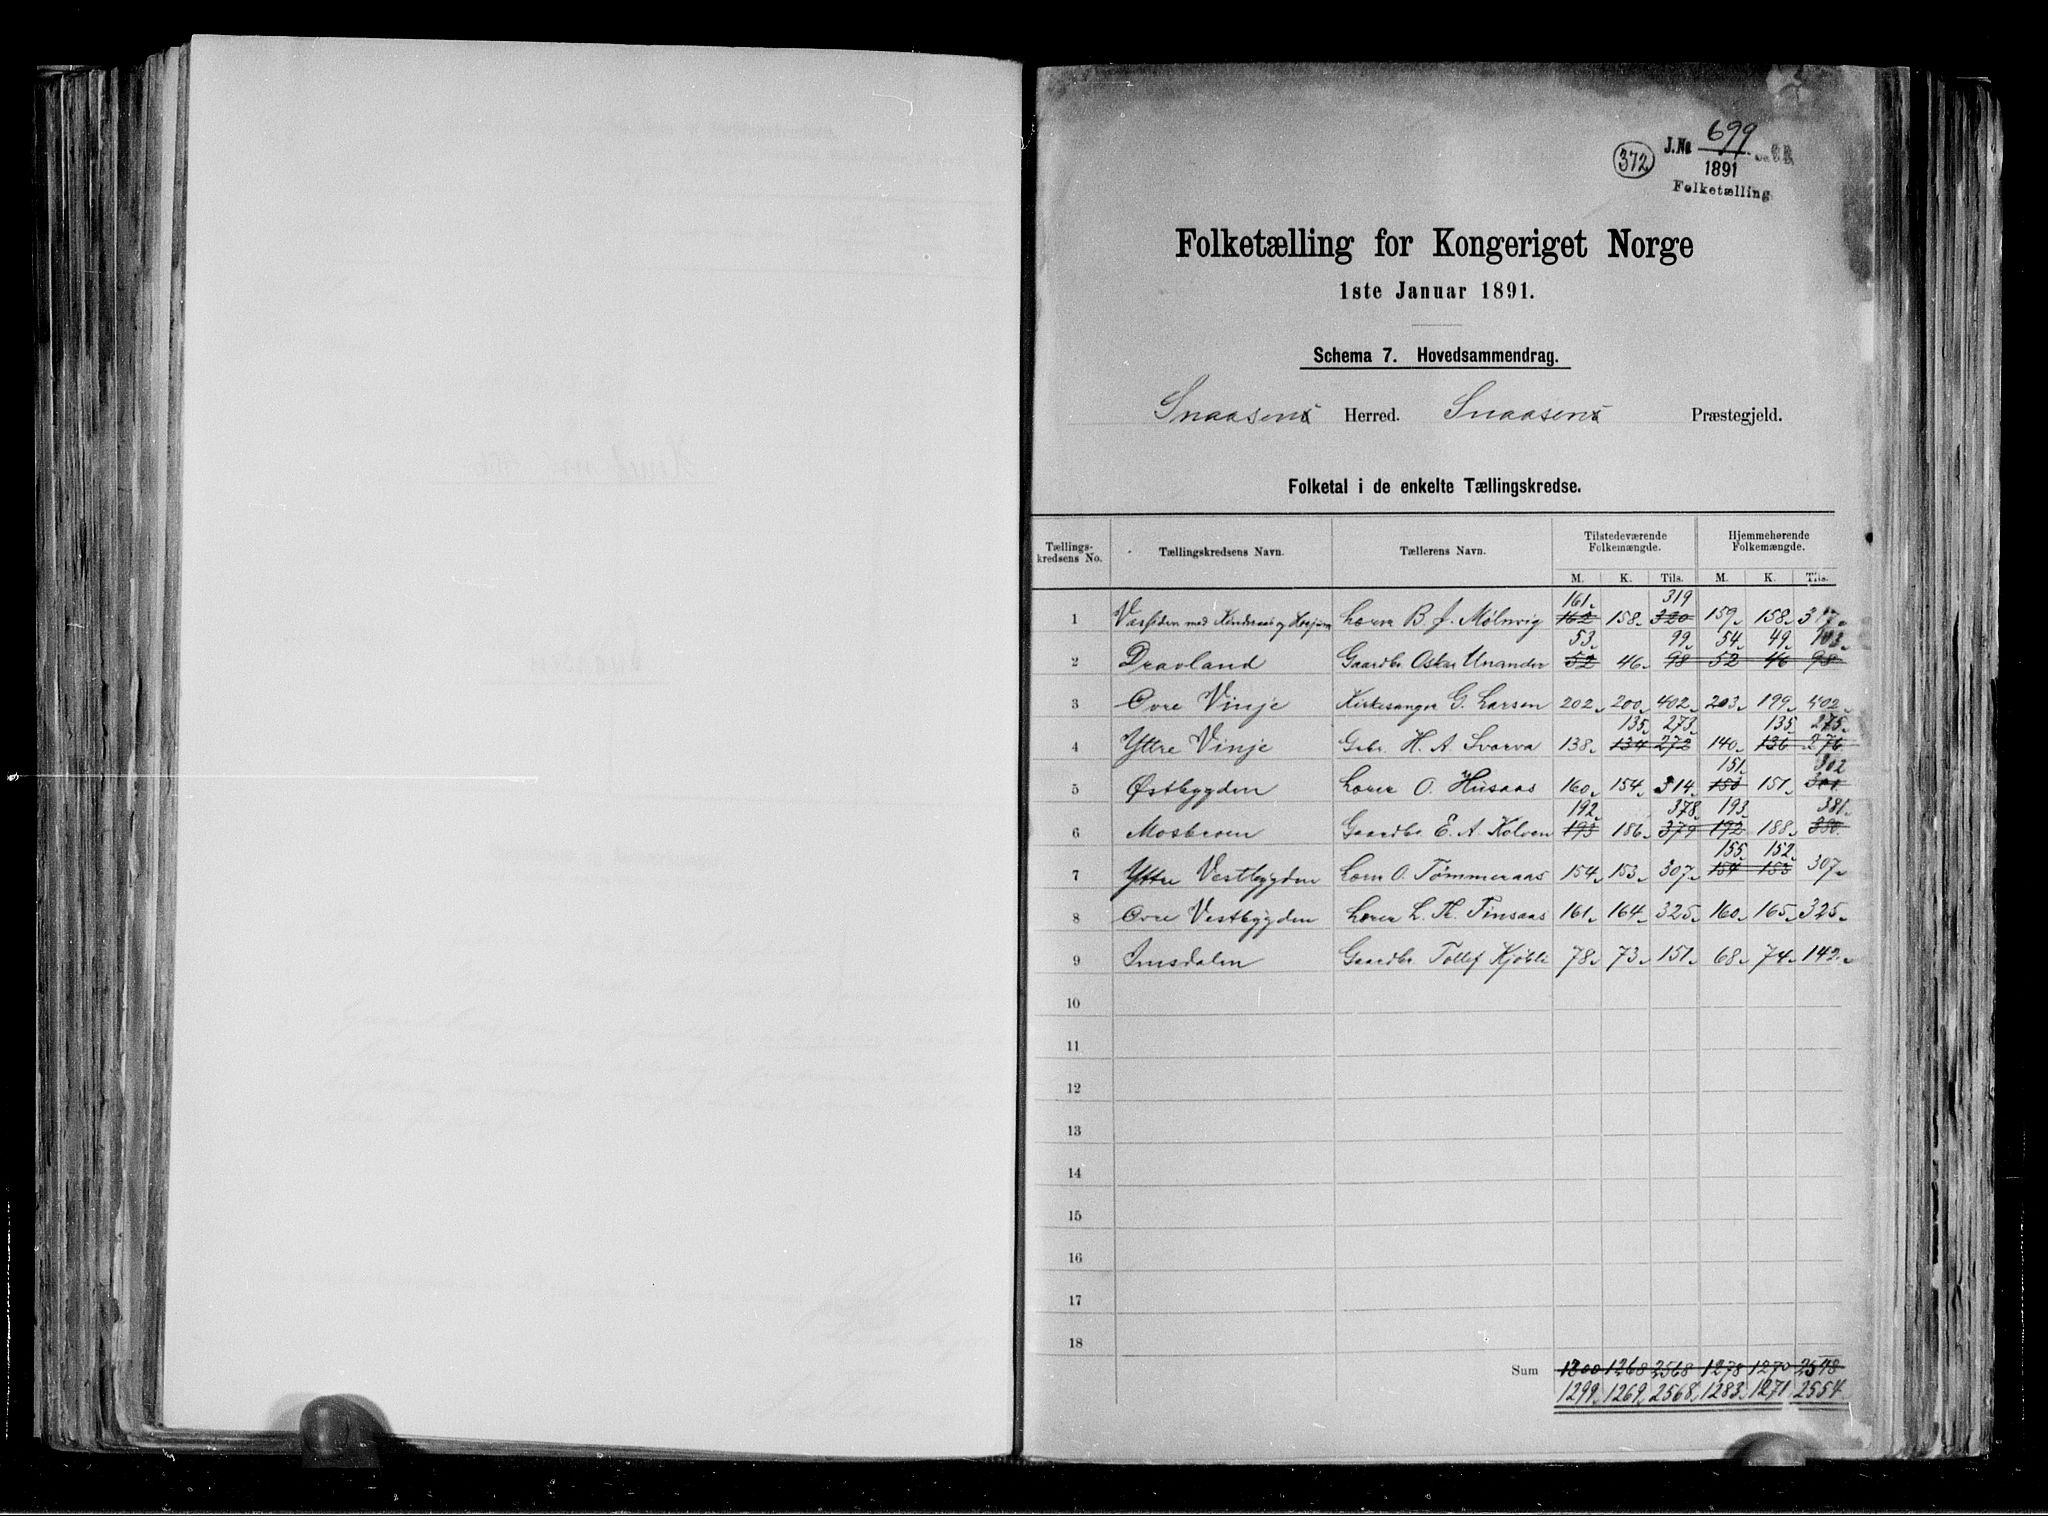 372 J.No 699
1891
Folketælling
Folketælling for Kongeriget Norge
1ste Januar 1891.
Schema 7. Hovedsammendrag.
Snaasens Herred. Snaasens Præstegjeld.
Folketal i de enkelte Tællingskredse.
Tællings-kredsens No. Tællingskredsens Navn. Tællerens Navn. Tilstedeværende Folkemængde. Hjemmehørende Folkemængde.
M. K. Tils. M. K. Tils.
161 319
1 med og Lærer B. J. Mølnvig 162 158 320 159 158 317
53 99 54 49 103
2 Dravland Gaardbr Oskar Unander 52 46 98 52 46 98
3 Ovre Vinje Kirkesanger G. Larsen 202 200 402 203 199 402
135 273 135 275
4 Yttre Vinje Gbr. H. A. Svarva 138 134 272 140 136 276
151 302
5 Østbygden Lærer O. Husaas 160 154 314 150 151 301
192 378 193 381
6 Mosbroen Gaardbr E. A. Kolven 193 186 379 192 188 380
155 152
7 Yttre Vestbygden Lærer O. Tømmeraas 154 153 307 154 153 307
8 Ovre Vestbygden Lærer L. Th. Finsaas 161 164 325 160 165 325
9 Imsdalen Gaardbr Tollef Kjøbli 78 73 151 68 74 142
10
11
12
13
14
15
16
17
18
Sum 1300 1268 2568 1278 1270 2548
1299 1269 2568 1283 1271 2554